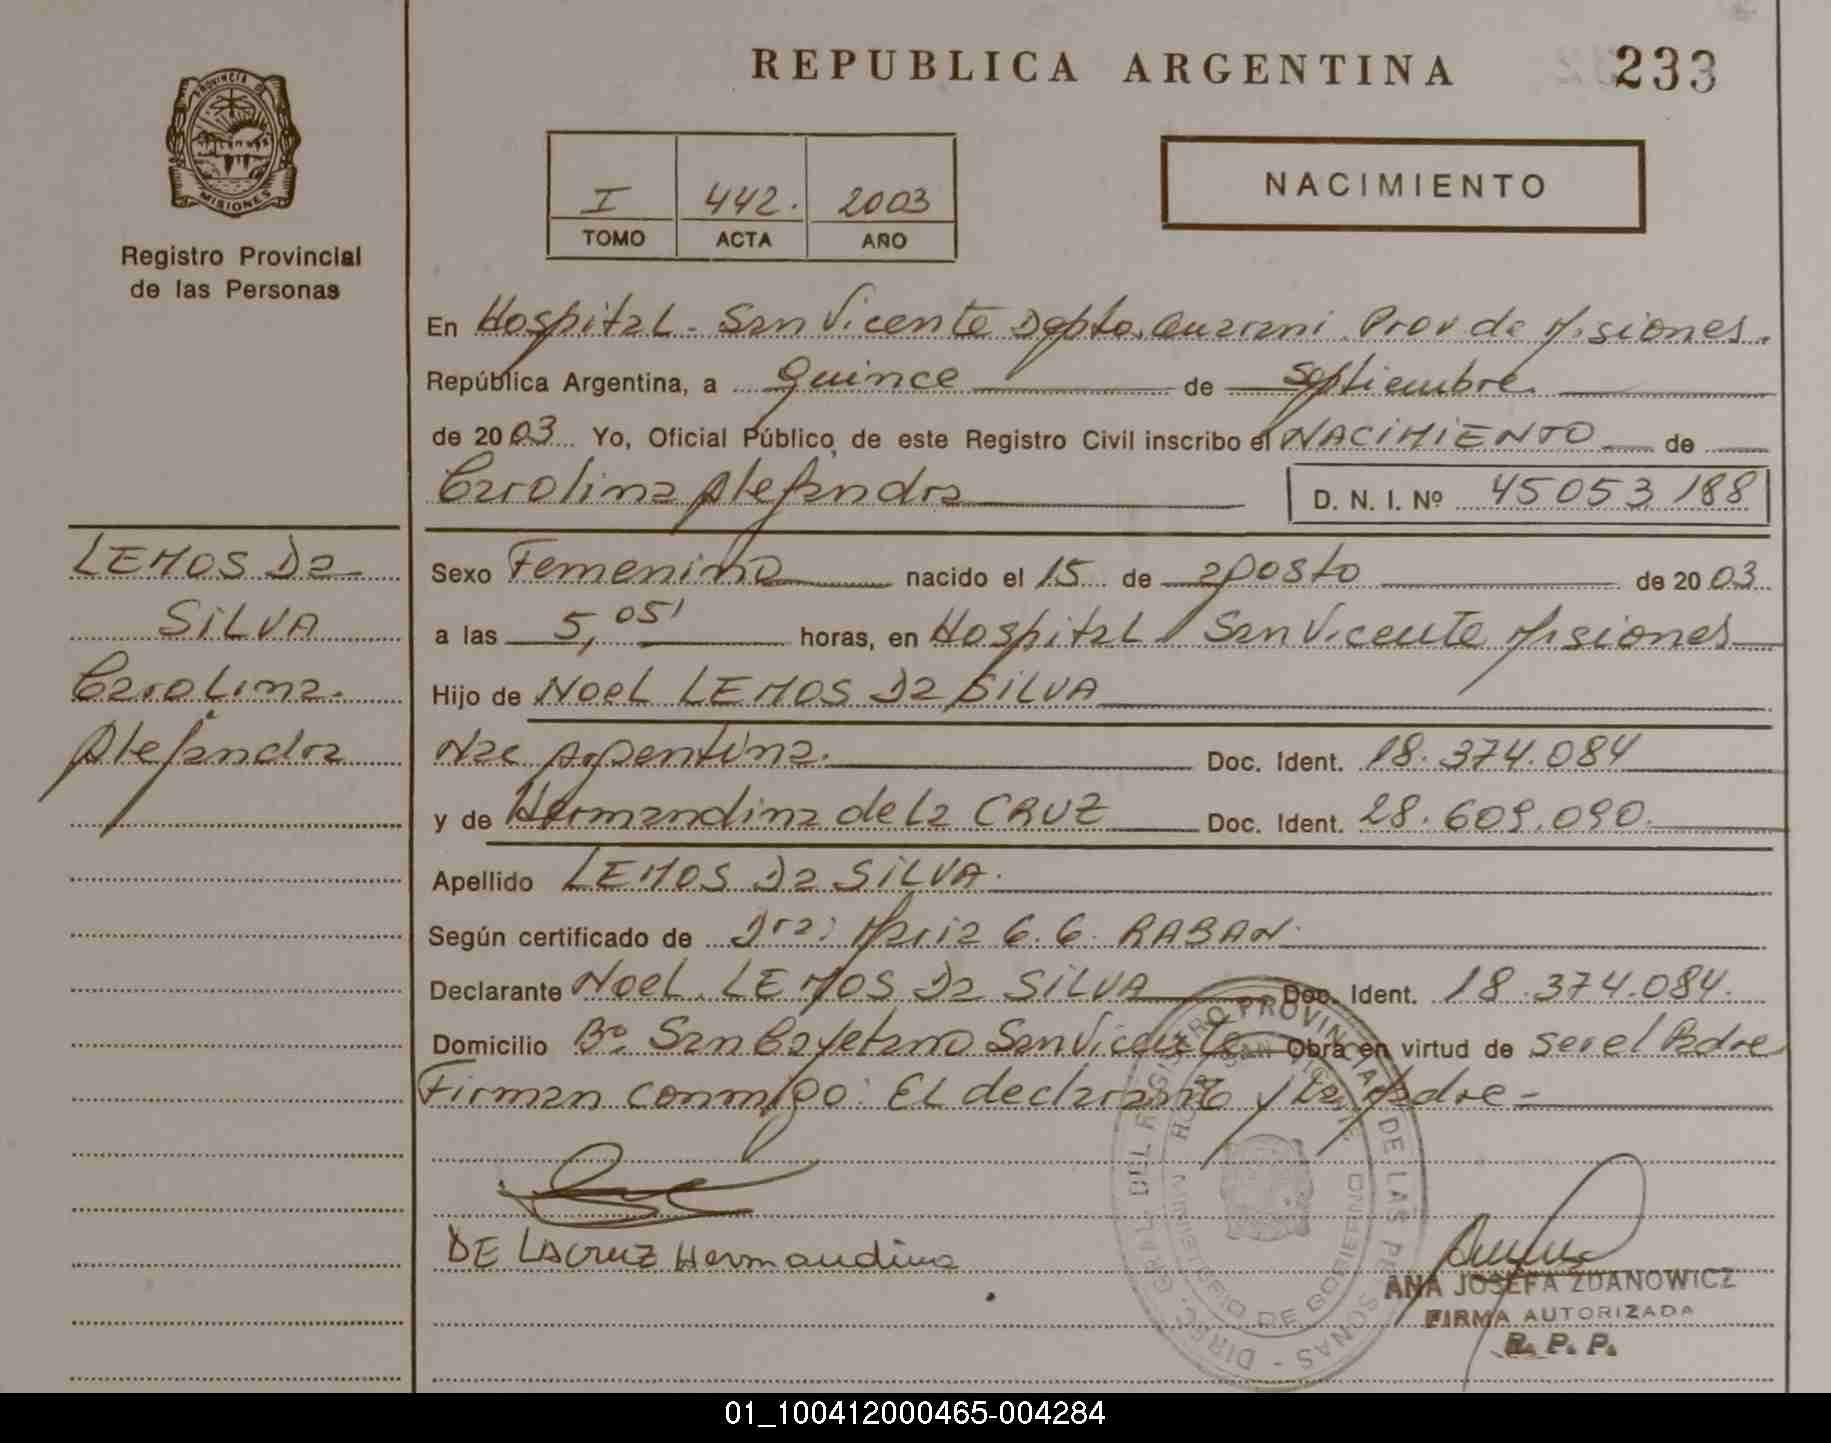 REPUBLICA ARGENTINA
233
PROVINCIA DE
MISIONES
Registro Provincial
de las Personas
I 442. 2003
TOMO ACTA AÑO
NACIMIENTO
En Hospital - San Vicente Dpto. Guarani. Prov de Misiones.
República Argentina, a quince de septiembre
de 2003 Yo, Oficial Público, de este Registro Civil inscribo el NACIMIENTO de
Carolina Alejandra D. N. I. Nº 45053188
LEMOS Da
SILVA
Carolina
Alejandra
Sexo Femenino nacido el 15 de agosto de 2003
a las 5,05' horas, en Hospital San Vicente Misiones
Hijo de Noel LEMOS Da SILVA
Nac Argentina. Doc. Ident. 18.374.084
y de Hermandina de la CRUZ Doc. Ident. 28.609.090.
Apellido LEMOS Da SILVA.
Según certificado de Dra: Maria G. G. RABAN.
Declarante Noel LEMOS Da SILVA Doc. Ident. 18.374.084.
Domicilio Bº San Cayetano San Vicente Obra en virtud de ser el Padre
Firman conmigo: EL declarante y la Madre -
DE LA CRUZ Hermandina
DIREC. GRAL. DEL REGISTRO PROVINCIAL DE LAS PERSONAS -
MINISTERIO DE GOBIERNO
ANA JOSEFA ZDANOWICZ
FIRMA AUTORIZADA
R. P. P.
01_100412000465-004284